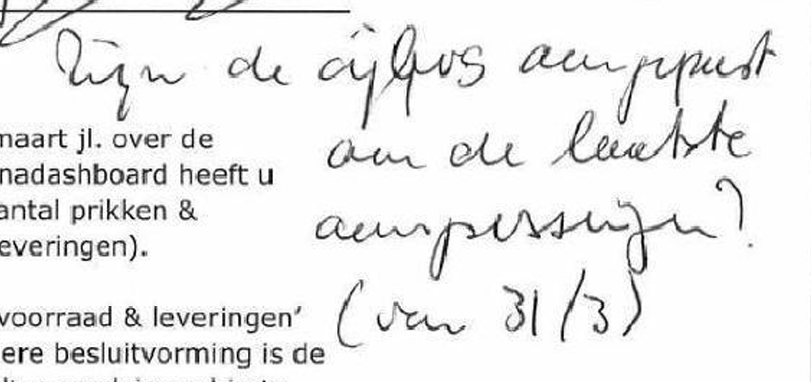 Zijn de cijfers aangepast
maart jl. over de
aan de laatste
nadashboard heeft u
antal prikken &
aanpassingen?
everingen).
voorraad & leveringen'
(van 31/3)
ere besluitvorming is de